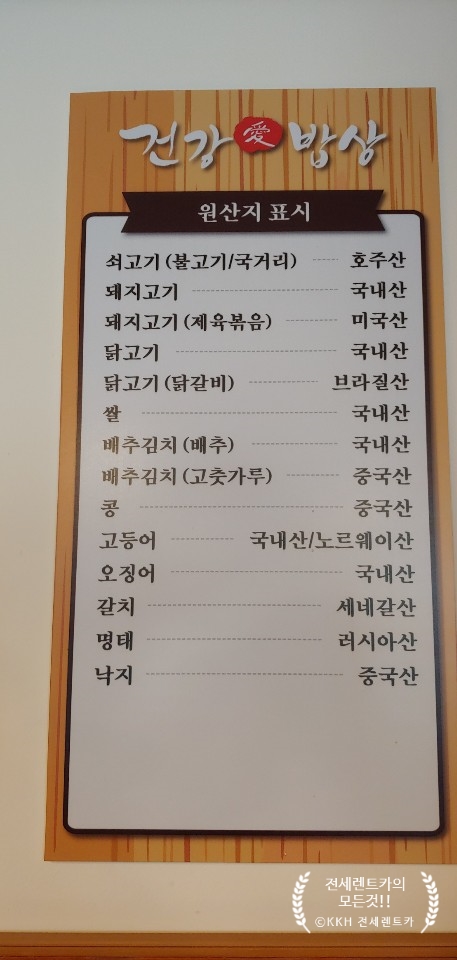 건강愛밥상
원산지 표시
쇠고기 (불고기/국거리) 호주산
돼지고기 국내산
돼지고기 (제육볶음) 미국산
닭고기 국내산
닭고기 (닭갈비) 브라질산
쌀 국내산
배추김치 (배추) 국내산
배추김치 (고춧가루) 중국산
콩 중국산
고등어 국내산/노르웨이산
오징어 국내산
갈치 세네갈산
명태 러시아산
낙지 중국산
전세렌트카의
모든것!!
©KKH 전세렌트카